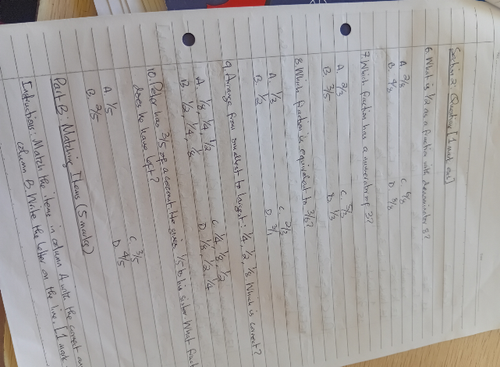 Section 2: [1 mark each]
6. What is 1/2 as a fraction with denominator 8?
A. 2/8 C. 6/8
B. 4/8 D. 8/8
7. Which fraction has a numerator of 3?
A. 2/3 C.
B. 3/5 D.
8. Which fraction is equivalent to 3/6?
A. 1/3 C. 2/3
B. 1/2 D. 3/1
9. Arrange from smallest to largest: 1/4, 1/2, 1/8. Which is correct?
A. 1/8, 1/4, 1/2 C. 1/4, 1/8, 1/2
B. 1/2, 1/4, 1/8 D. 1/8, 1/2, 1/4
10. Peter has 3/5 of a He gives 1/5 to his sister. What
does he have left?
A. 1/5 C. 3/5
B. 2/5 D. 4/5
Part B: Matching Items (5 marks)
Instructions: Match the items in column A with the correct
column B. Write the letter on the line. [1 mark